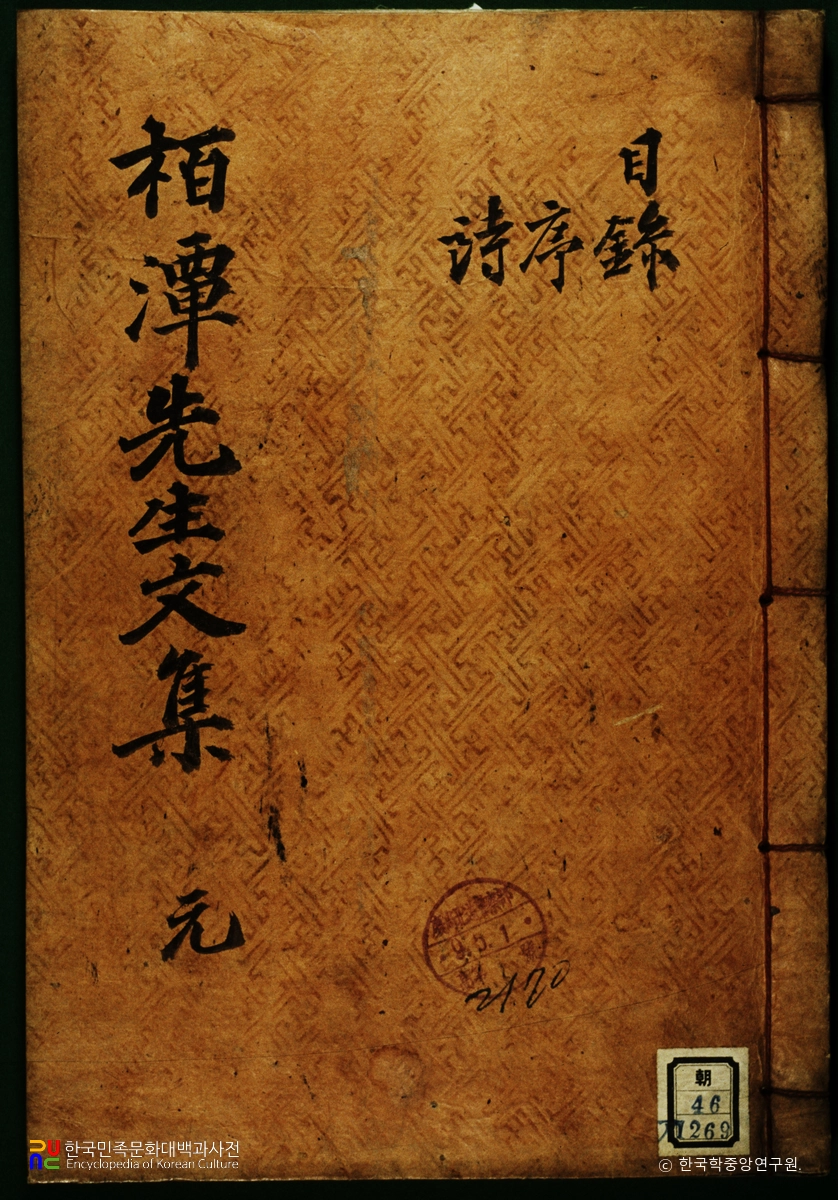 目錄
序
詩
栢潭先生文集 元
9.5.1
21.70
朝
46
1269
한국민족문화대백과사전
Encyclopedia of Korean Culture
© 한국학중앙연구원.